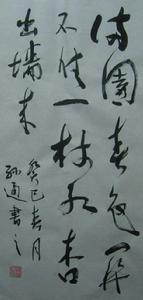 满園春色関
不住一枝红杏
出墙来
癸巳春月
孙
書之